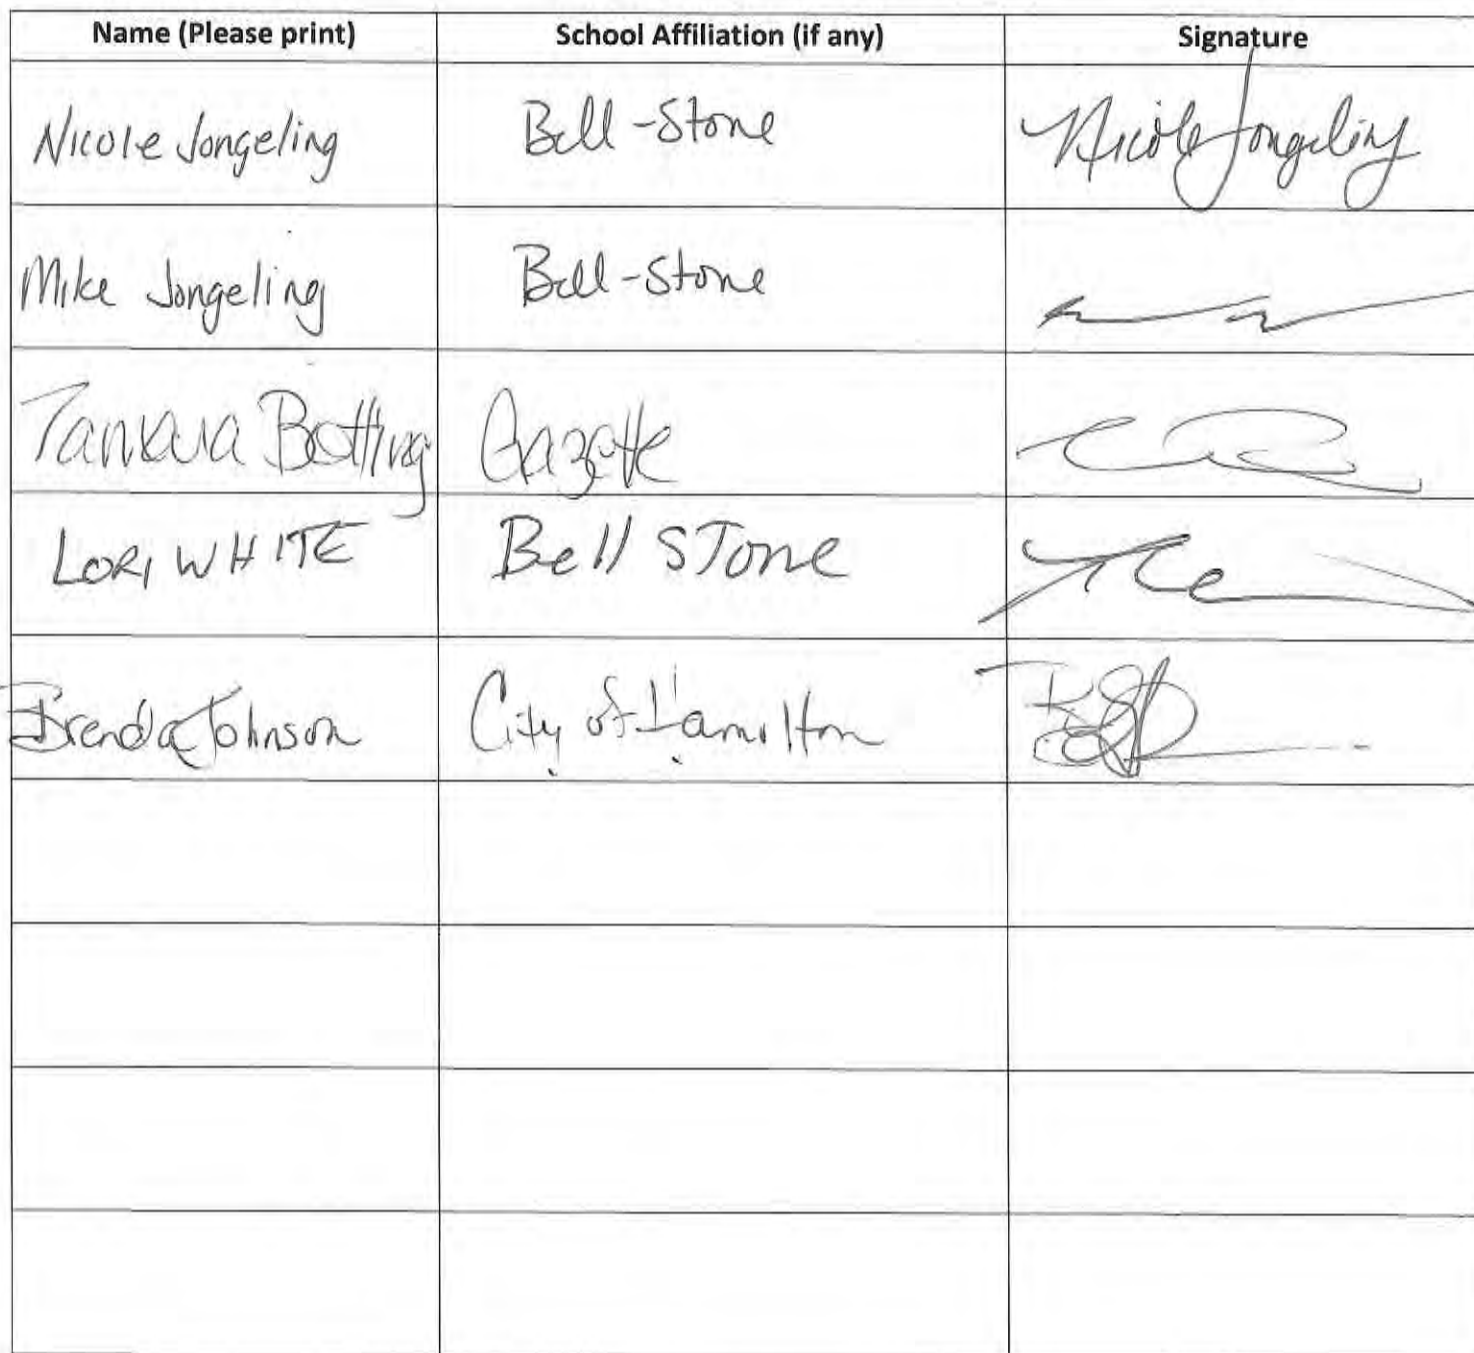 Name (Please print) School Affiliation (if any) Signature
Nicole Jongeling Bell-Stone Nicole Jongeling
Mike Jongeling Bell-Stone
Botting Gazette
LORI WHITE Bell STone
Brenda Johnson City of Hamilton